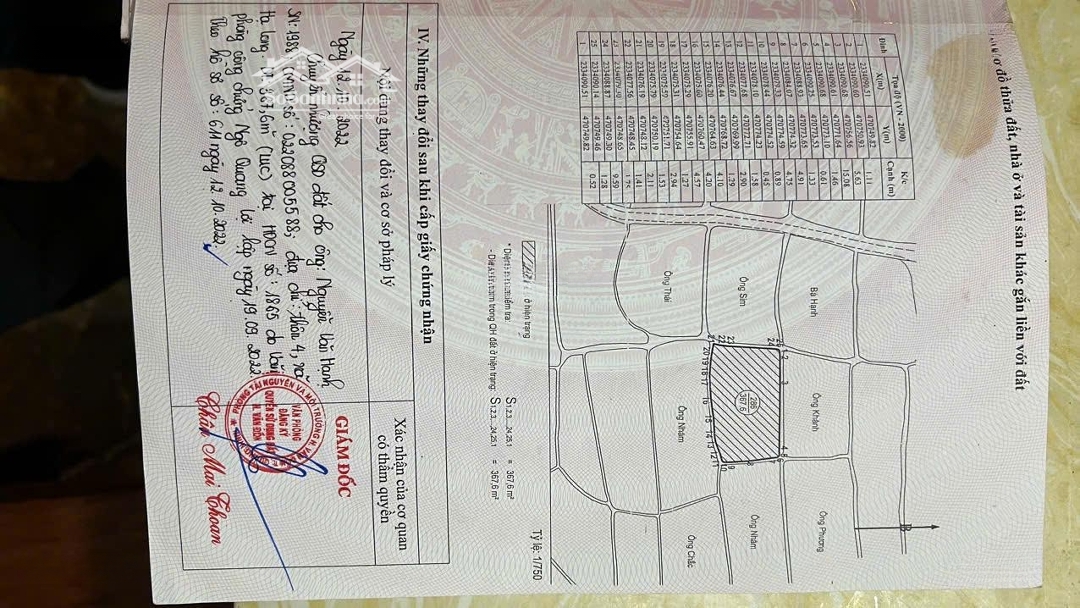 III. Sơ đồ thửa đất, nhà ở và tài sản khác gắn liền với đất
Đỉnh Tọa độ (VN - 2000) K/c
X(m) Y(m) Cạnh (m)
1 2334090.51 470749.82
1.11
2 2334090.60 470750.93
5.63
3 470756.56
15.08
4 2334090.61 470771.64
1.46
5 2334090.68 470773.10
0.61
6 2334090.25 470773.53
1.33
7 2334088.93 470773.65
4.91
8 2334084.07 470774.32
4.75
9 2334079.33 470774.59
0.89
10 2334078.44 470774.52
0.45
11 2334078.10 470774.23
12 2334077.68 470772.71
2.90
13 2334076.67 470769.99
1.29
14 2334076.44 470768.72
4.10
15 2334076.20 470764.63
4.20
16 2334075.60 470760.47
4.57
17 2334075.29 470755.91
1.27
18 2334075.31 470754.64
2.94
19 2334075.59 470751.71
1.53
20 2334075.79 470750.19
2.11
21 2334076.19 470748.12
1.41
22 2334077.56 470748.45
23 2334079.30 470748.65
9.59
24 2334088.87 470749.30
1.28
25 2334090.14 470749.46
0.52
1 2334090.51 470749.82
Ông Thái
Ông Sim
Bà Hạnh
Ông Nhâm
286
367.6
Ông Khánh
Ông Chắc
Ông Nhâm
Ông Phương
ở hiện trạng
- Diện tích nằm trong QH đất ở hiện trạng: S1,2,3,...,24,25,1 = 367,6 m²
S1,2,3,...,24,25,1 = 367,6 m²
Tỷ lệ: 1/750
IV. Những thay đổi sau khi cấp giấy chứng nhận
Nội dung thay đổi và cơ sở pháp lý
Xác nhận của cơ quan có thẩm quyền
Ngày 12.10.2022
Chuyển nhượng QSD đất cho ông: Nguyễn Văn Hạnh
SN: 1988 CMTND số: 022088005588; địa chỉ: Thôn 4, xã
Hạ Long. 367,6m² (LUC) tại HĐCN số: 1865 do Văn
phòng công chứng Ngô Quang Lợi lập ngày 19.09.2022
Theo hồ sơ số: 611 ngày 12.10.2022.
GIÁM ĐỐC
PHÒNG TÀI NGUYÊN VÀ MÔI TRƯỜNG H. VÂN ĐỒN
VĂN PHÒNG
ĐĂNG KÝ
QUYỀN SỬ DỤNG ĐẤT
H. VÂN ĐỒN
Chân Mai Thoan